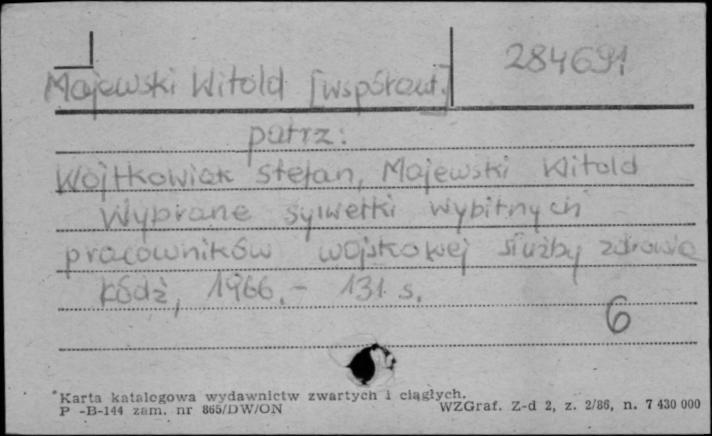 284691
Majewski Witold [współaut.]
patrz:
Wojtkowiak Stefan, Majewski Witold
Wybrane sylwetki wybitnych
pracowników wojskowej służby zdrowia
Łódź, 1966. - 131 s.
6
*Karta katalogowa wydawnictw zwartych i ciągłych.
P -B-144 zam. nr 865/DW/ON WZGraf. Z-d 2, z. 2/86, n. 7 430 000